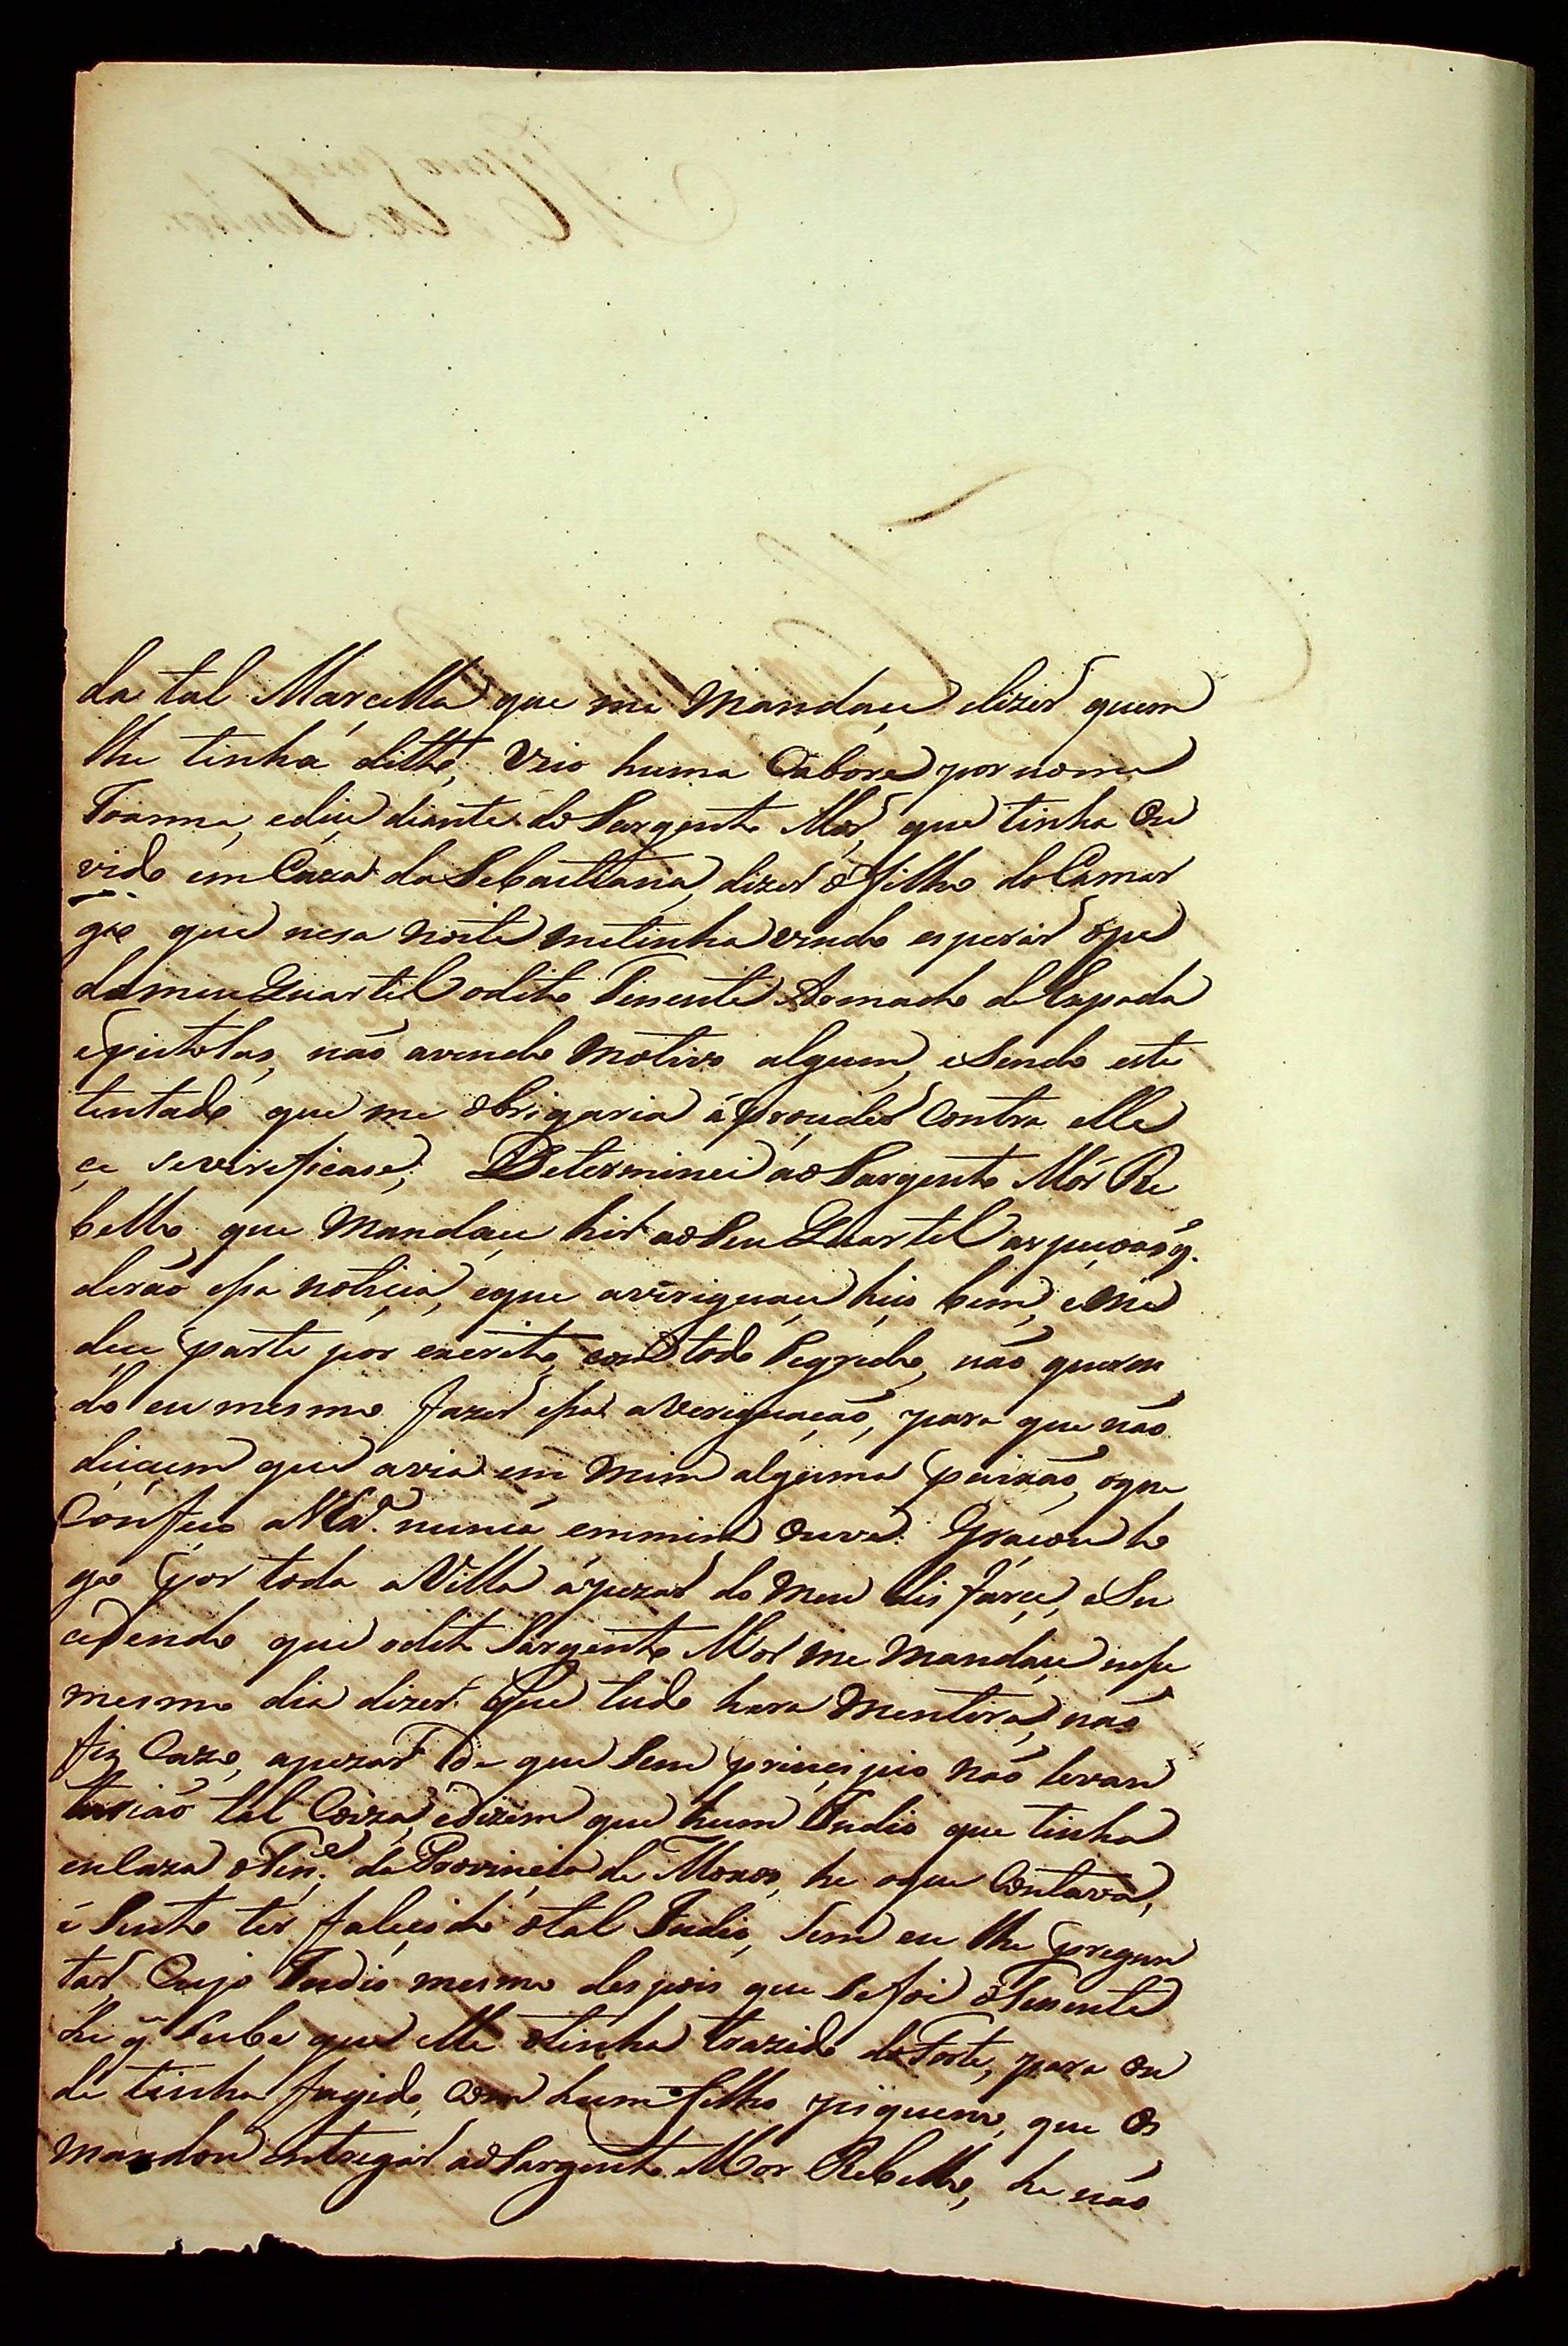 da tal Marcella que me Mandaçe dizer quem
lhe tinha ditto, Veio huma Cabore por nome
Joanna, e diçe diante do Sargento Mór, que tinha Ou
vido em Caza da Sebastiana, dizer o filho do Camar
go que nesa noite me tinha vindo esperar ope
do meu Quartel odito Tenente Armado de Espada
epistolas, não avendo Motivo algum, eSendo este
tentado que me obrigaria á proceder Contra elle
çe severificase; Determinei ao Sargento Mór Re
bello que Mandaçe hir ao Seu Quartel as peçoas q.
derão essa noticia, eque averiguaçe hiço bem, eMe
deçe parte por escrito, com todo Segredo, não queren
do eu mesmo fazer essa aVeriguação, para que não
diçecem que avia em Mim alguma paixão, oque
Confeço aVEx.ª nunca emmim Ouve. Graçou lo
go por toda aVilla ápezar do Meu disfarce, eSu
cedendo que odito Sargento Mor me Mandaçe nesse
mesmo dia dizer que tudo hera Mentira, não
fiz Cazo, apezar de que Sem principio não levan
tarião tal Coiza, edizem que hum Indio que tinha
emCaza oTen.e da Provincia de Moxos, he oque Contava,
é Sinto ter falecido otal Indio, Sem eu lhe pregun
tar, Cujo Indio mesmo despois que Sefoi oTenente
he q Soube que elle otinha trazido do Forte, para On
de tinha fugido, Com hum filho piqueno, que Os
Mandou entregar ao Sargento Mor Rebello, he não